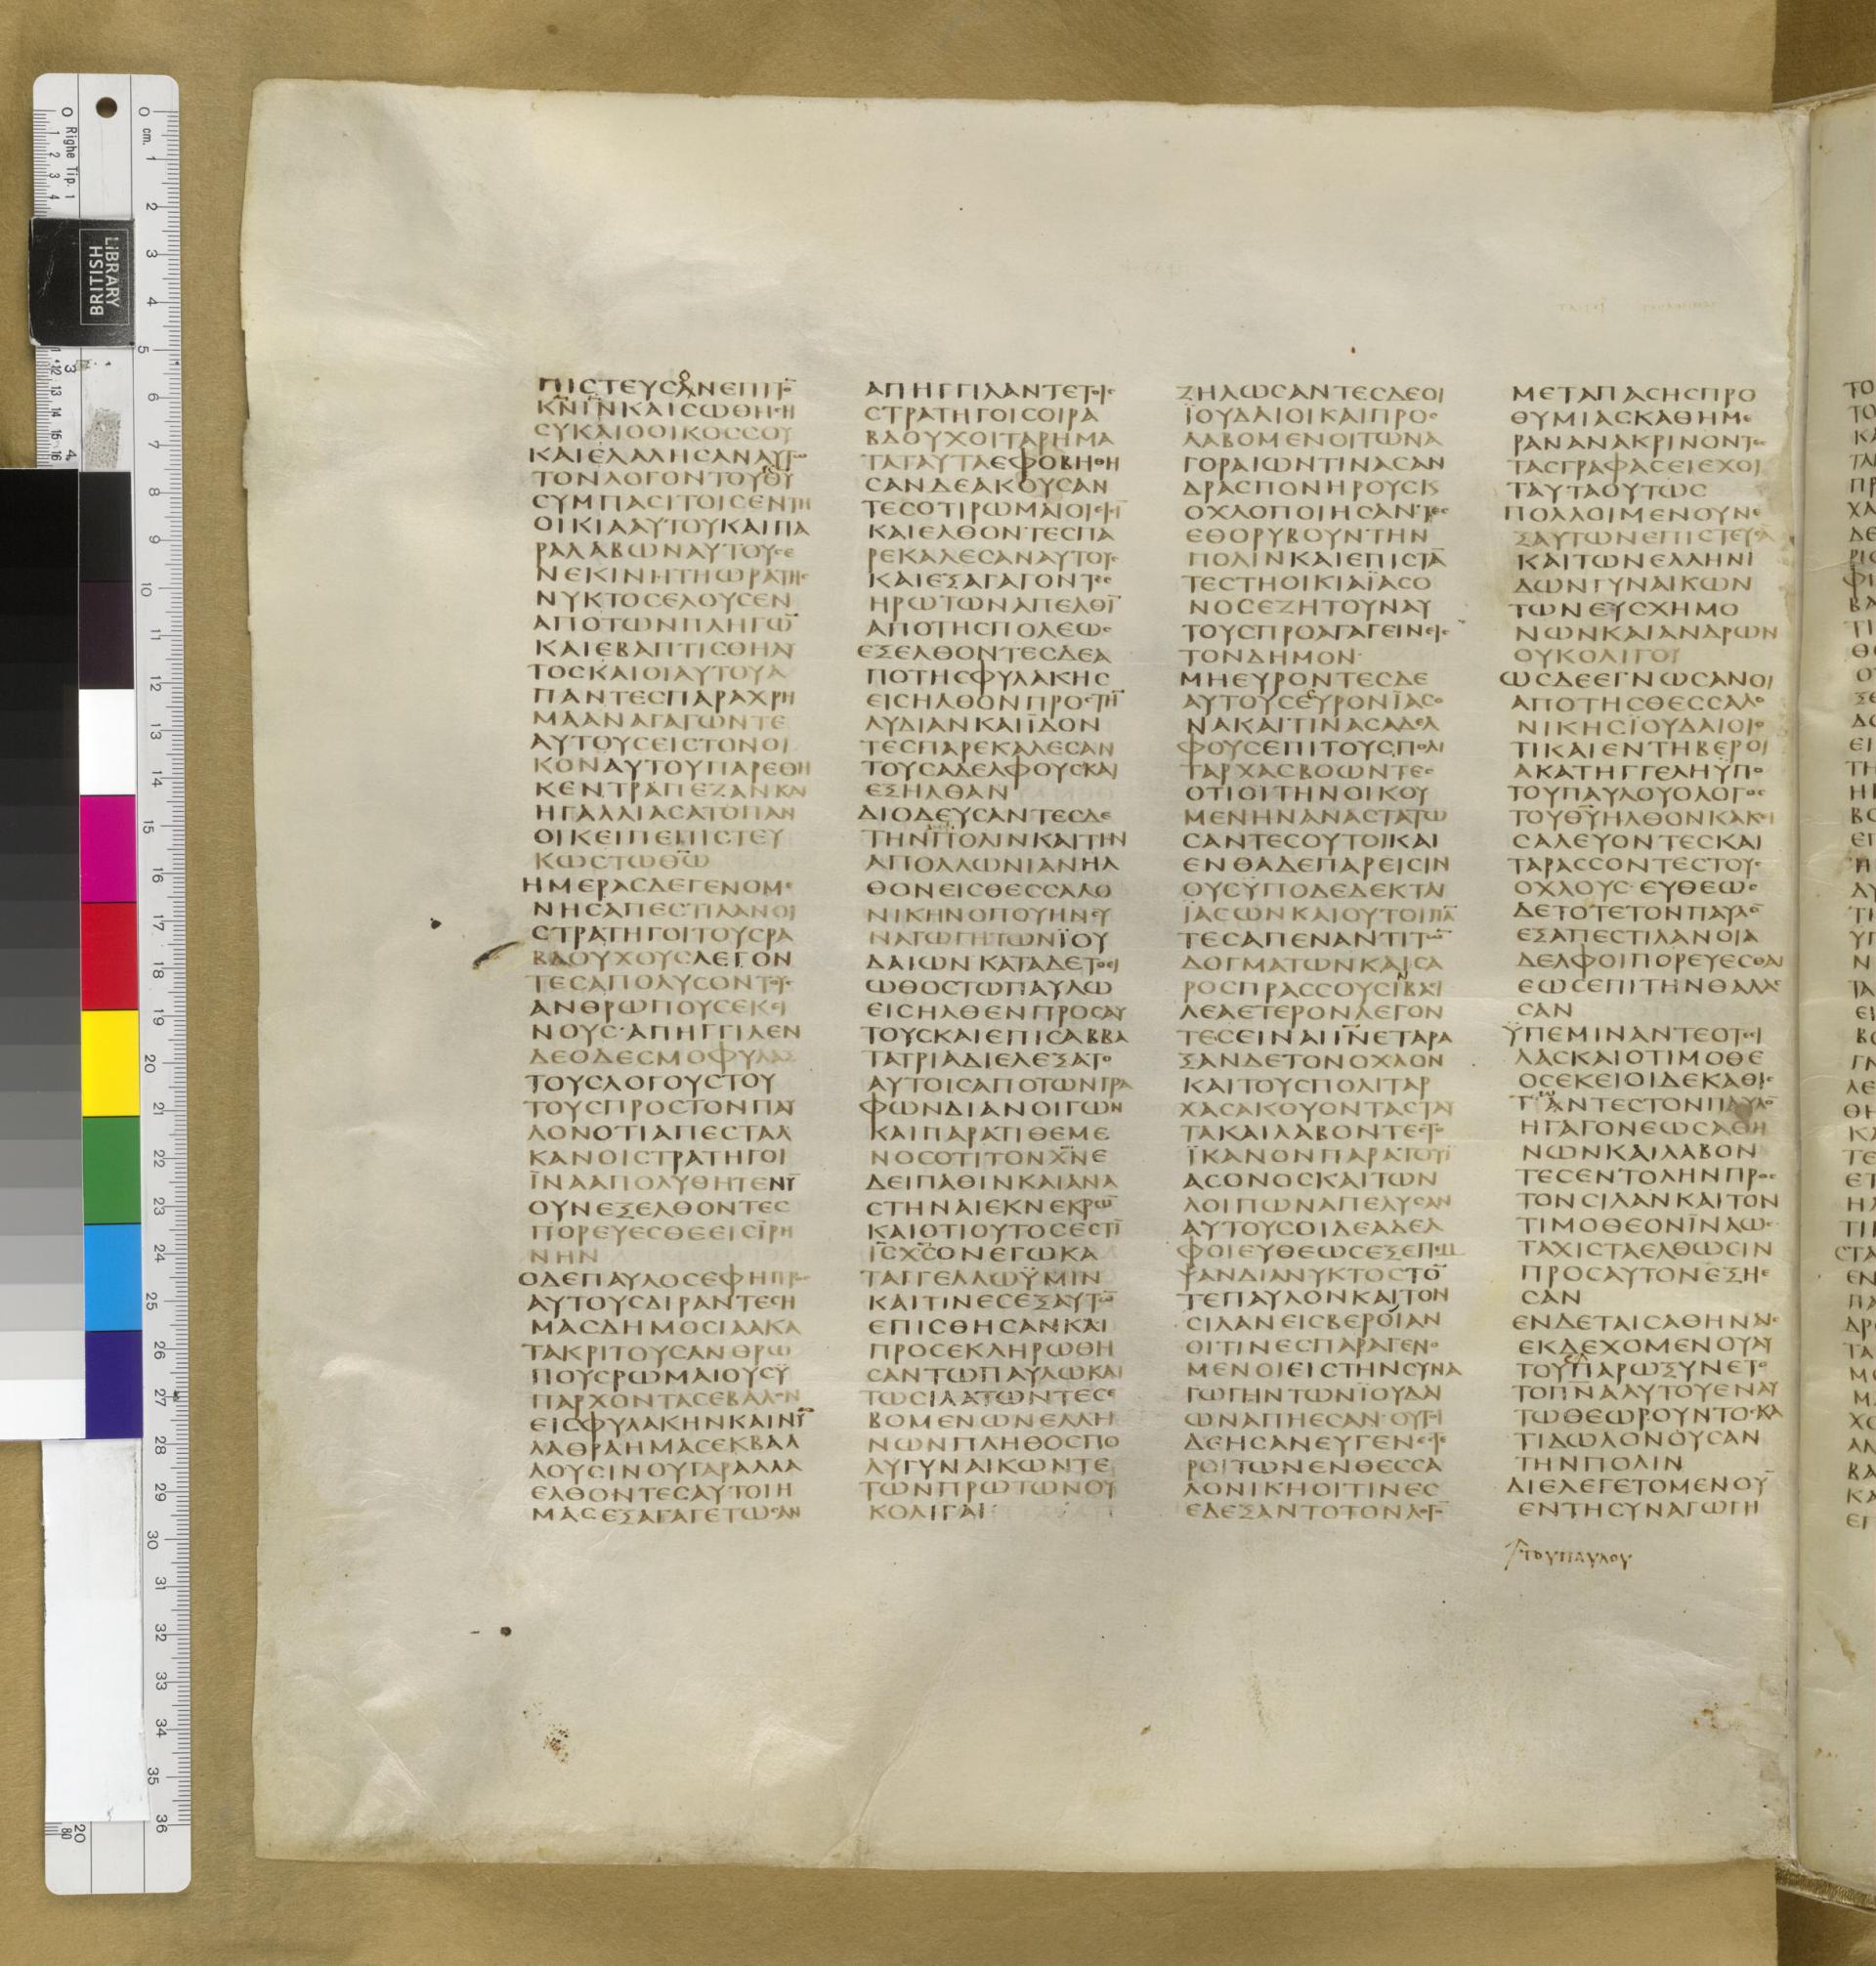 ΠΙϹΤΕΥϹΑΝΕΠΙΤΟ̅
ΚΝ̅ΙΝ̅ΚΑΙϹΩΘΗϹΗ
ϹΥΚΑΙΟΟΙΚΟϹϹΟΥ
ΚΑΙΕΛΑΛΗϹΑΝΑΥΤΩ
ΤΟΝΛΟΓΟΝΤΟΥΘΥ
ϹΥΜΠΑϹΙΤΟΙϹΕΝΤΗ
ΟΙΚΙΑΑΥΤΟΥΚΑΙΠΑ
ΡΑΛΑΒΩΝΑΥΤΟΥϹΕ
ΝΕΚΙΝΗΤΗΩΡΑΤΗϹ
ΝΥΚΤΟϹΕΛΟΥϹΕΝ
ΑΠΟΤΩΝΠΛΗΓΩ̅
ΚΑΙΕΒΑΠΤΙϹΘΗΑΥ
ΤΟϹΚΑΙΟΙΑΥΤΟΥΑ
ΠΑΝΤΕϹΠΑΡΑΧΡΗ
ΜΑΑΝΑΓΑΓΩΝΤΕ
ΑΥΤΟΥϹΕΙϹΤΟΝΟΙ
ΚΟΝΑΥΤΟΥΠΑΡΕΘΗ
ΚΕΝΤΡΑΠΕΖΑΝΚΑΙ
ΗΓΑΛΛΙΑϹΑΤΟΠΑΝ
ΟΙΚΕΙΠΕΠΙϹΤΕΥ
ΚΩϹΤΩΘΩ̅
ΗΜΕΡΑϹΔΕΓΕΝΟΜΕ
ΝΗϹΑΠΕϹΤΙΛΑΝΟΙ
ϹΤΡΑΤΗΓΟΙΤΟΥϹΡΑ
ΒΔΟΥΧΟΥϹΛΕΓΟΝ
ΤΕϹΑΠΟΛΥϹΟΝΤΟΥϹ
ΑΝΘΡΩΠΟΥϹΕΚΕΙ
ΝΟΥϹ·ΑΠΗΓΓΙΛΕΝ
ΔΕΟΔΕϹΜΟΦΥΛΑΞ
ΤΟΥϹΛΟΓΟΥϹΤΟΥ
ΤΟΥϹΠΡΟϹΤΟΝΠΑΥ
ΛΟΝΟΤΙΑΠΕϹΤΑΛ
ΚΑΝΟΙϹΤΡΑΤΗΓΟΙ
ΪΝΑΑΠΟΛΥΘΗΤΕΝΥ̅
ΟΥΝΕΞΕΛΘΟΝΤΕϹ
ΠΟΡΕΥΕϹΘΕΕΙϹΪΡΗ
ΝΗΝ
ΟΔΕΠΑΥΛΟϹΕΦΗΠΡΟϹ
ΑΥΤΟΥϹΔΙΡΑΝΤΕϹΗ
ΜΑϹΔΗΜΟϹΙΑΑΚΑ
ΤΑΚΡΙΤΟΥϹΑΝΘΡΩ
ΠΟΥϹΡΩΜΑΙΟΥϹΫ
ΠΑΡΧΟΝΤΑϹΕΒΑΛΟΝ
ΕΙϹΦΥΛΑΚΗΝΚΑΙΝΥ̅
ΛΑΘΡΑΗΜΑϹΕΚΒΑΛ
ΛΟΥϹΙΝΟΥΓΑΡΑΛΛΑ
ΕΛΘΟΝΤΕϹΑΥΤΟΙΗ
ΜΑϹΕΞΑΓΑΓΕΤΩϹΑΝ
ΑΠΗΓΓΙΛΑΝΤΕΤΟΙϹ
ϹΤΡΑΤΗΓΟΙϹΟΙΡΑ
ΒΔΟΥΧΟΙΤΑΡΗΜΑ
ΤΑΤΑΥΤΑΕΦΟΒΗΘΗ
ϹΑΝΔΕΑΚΟΥϹΑΝ
ΤΕϹΟΤΙΡΩΜΑΙΟΙΕΙϹΙ̅
ΚΑΙΕΛΘΟΝΤΕϹΠΑ
ΡΕΚΑΛΕϹΑΝΑΥΤΟΥϹ
ΚΑΙΕΞΑΓΑΓΟΝΤΕϹ
ΗΡΩΤΩΝΑΠΕΛΘΙ̅
ΑΠΟΤΗϹΠΟΛΕΩϹ
ΕΞΕΛΘΟΝΤΕϹΔΕΑ
ΠΟΤΗϹΦΥΛΑΚΗϹ
ΕΙϹΗΛΘΟΝΠΡΟϹΤΗ̅
ΛΥΔΙΑΝΚΑΙΪΔΟΝ
ΤΕϹΠΑΡΕΚΑΛΕϹΑΝ
ΤΟΥϹΑΔΕΛΦΟΥϹΚΑΙ
ΕΞΗΛΘΑΝ
ΔΙΟΔΕΥϹΑΝΤΕϹΔΕ
ΤΗΝΠΟΛΙΝΚΑΙΤΗΝ
ΑΠΟΛΛΩΝΙΑΝΗΛ
ΘΟΝΕΙϹΘΕϹϹΑΛΟ
ΝΙΚΗΝΟΠΟΥΗΝϹΥ
ΝΑΓΩΓΗΤΩΝΪΟΥ
ΔΑΙΩΝΚΑΤΑΔΕΤΟΕΙ
ΩΘΟϹΤΩΠΑΥΛΩ
ΕΙϹΗΛΘΕΝΠΡΟϹΑΥ
ΤΟΥϹΚΑΙΕΠΙϹΑΒΒΑ
ΤΑΤΡΙΑΔΙΕΛΕΞΑΤΟ
ΑΥΤΟΙϹΑΠΟΤΩΝΓΡΑ
ΦΩΝΔΙΑΝΟΙΓΩΝ
ΚΑΙΠΑΡΑΤΙΘΕΜΕ
ΝΟϹΟΤΙΤΟΝΧΝ̅Ε
ΔΕΙΠΑΘΙΝΚΑΙΑΝΑ
ϹΤΗΝΑΙΕΚΝΕΚΡΩ̅
ΚΑΙΟΤΙΟΥΤΟϹΕϹΤΙ̅
ΙϹ̅ΧϹ̅ΟΝΕΓΩΚΑ
ΤΑΓΓΕΛΛΩΫΜΙΝ
ΚΑΙΤΙΝΕϹΕΞΑΥΤΩ̅
ΕΠΙϹΘΗϹΑΝΚΑΙ
ΠΡΟϹΕΚΛΗΡΩΘΗ
ϹΑΝΤΩΠΑΥΛΩΚΑΙ
ΤΩϹΙΛΑΤΩΝΤΕϹΕ
ΒΟΜΕΝΩΝΕΛΛΗ
ΝΩΝΠΛΗΘΟϹΠΟ
ΛΥΓΥΝΑΙΚΩΝΤΕ
ΤΩΝΠΡΩΤΩΝΟΥ
ΚΟΛΙΓΑΙ
ΖΗΛΩϹΑΝΤΕϹΔΕΟΙ
ΪΟΥΔΑΙΟΙΚΑΙΠΡΟϹ
ΛΑΒΟΜΕΝΟΙΤΩΝΑ
ΓΟΡΑΙΩΝΤΙΝΑϹΑΝ
ΔΡΑϹΠΟΝΗΡΟΥϹΚϏ
ΟΧΛΟΠΟΙΗϹΑΝΤΕϹ
ΕΘΟΡΥΒΟΥΝΤΗΝ
ΠΟΛΙΝΚΑΙΕΠΙϹΤΑ̅
ΤΕϹΤΗΟΙΚΙΑΪΑϹΟ
ΝΟϹΕΖΗΤΟΥΝΑΥ
ΤΟΥϹΠΡΟΑΓΑΓΕΙΝΕΙϹ
ΤΟΝΔΗΜΟΝ
ΜΗΕΥΡΟΝΤΕϹΔΕ
ΑΥΤΟΥϹΕΥΡΟΝΪΑϹΟ
ΝΑΚΑΙΤΙΝΑϹΑΔΕΛ
ΦΟΥϹΕΠΙΤΟΥϹΠΟΛΙ
ΤΑΡΧΑϹΒΟΩΝΤΕϹ
ΟΤΙΟΙΤΗΝΟΙΚΟΥ
ΜΕΝΗΝΑΝΑϹΤΑΤΩ
ϹΑΝΤΕϹΟΥΤΟΙΚΑΙ
ΕΝΘΑΔΕΠΑΡΕΙϹΙΝ
ΟΥϹΫΠΟΔΕΔΕΚΤΑΙ
ΪΑϹΩΝΚΑΙΟΥΤΟΙΠΑ̅
ΤΕϹΑΠΕΝΑΝΤΙΤΩ̅
ΔΟΓΜΑΤΩΝΚΑΙϹΑ
ΡΟϹΠΡΑϹϹΟΥϹΙΒΑϹΙ
ΛΕΑΕΤΕΡΟΝΛΕΓΟΝ
ΤΕϹΕΙΝΑΙΙΝ̅ΕΤΑΡΑ
ΞΑΝΔΕΤΟΝΟΧΛΟΝ
ΚΑΙΤΟΥϹΠΟΛΙΤΑΡ
ΧΑϹΑΚΟΥΟΝΤΑϹΤΑΥ
ΤΑΚΑΙΛΑΒΟΝΤΕϹΤΟ
ΪΚΑΝΟΝΠΑΡΑΤΟΥΪ
ΑϹΟΝΟϹΚΑΙΤΩΝ
ΛΟΙΠΩΝΑΠΕΛΥϹΑΝ
ΑΥΤΟΥϹΟΙΔΕΑΔΕΛ
ΦΟΙΕΥΘΕΩϹΕΞΕΠΕΜ
ΨΑΝΔΙΑΝΥΚΤΟϹΤΟ̅
ΤΕΠΑΥΛΟΝΚΑΙΤΟΝ
ϹΙΛΑΝΕΙϹΒΕΡΟΙΑΝ
ΟΙΤΙΝΕϹΠΑΡΑΓΕΝΟ
ΜΕΝΟΙΕΙϹΤΗΝϹΥΝΑ
ΓΩΓΗΝΤΩΝΪΟΥΔΑΙ
ΩΝΑΠΗΕϹΑΝ·ΟΥΤΟΙ
ΔΕΗϹΑΝΕΥΓΕΝΕϹΤΕ
ΡΟΙΤΩΝΕΝΘΕϹϹΑ
ΛΟΝΙΚΗΟΙΤΙΝΕϹ
ΕΔΕΞΑΝΤΟΤΟΝΛΟΓΟ̅
ΜΕΤΑΠΑϹΗϹΠΡΟ
ΘΥΜΙΑϹΚΑΘΗΜΕ
ΡΑΝΑΝΑΚΡΙΝΟΝΤΕϹ
ΤΑϹΓΡΑΦΑϹΕΙΕΧΟΙ
ΤΑΥΤΑΟΥΤΩϹ
ΠΟΛΛΟΙΜΕΝΟΥΝΕ
ΞΑΥΤΩΝΕΠΙϹΤΕΥϹΑ̅
ΚΑΙΤΩΝΕΛΛΗΝΙ
ΔΩΝΓΥΝΑΙΚΩΝ
ΤΩΝΕΥϹΧΗΜΟ
ΝΩΝΚΑΙΑΝΔΡΩΝ
ΟΥΚΟΛΙΓΟΙ
ΩϹΔΕΕΓΝΩϹΑΝΟΙ
ΑΠΟΤΗϹΘΕϹϹΑΛΟ
ΝΙΚΗϹΪΟΥΔΑΙΟΙΟ
ΤΙΚΑΙΕΝΤΗΒΕΡΟΙ
ΑΚΑΤΗΓΓΕΛΗΫΠΟ
ΤΟΥΠΑΥΛΟΥΟΛΟΓΟϹ
ΤΟΥΘΥ̅ΗΛΘΟΝΚΑΚΕΙ
ϹΑΛΕΥΟΝΤΕϹΚΑΙ
ΤΑΡΑϹϹΟΝΤΕϹΤΟΥϹ
ΟΧΛΟΥϹ·ΕΥΘΕΩϹ
ΔΕΤΟΤΕΤΟΝΠΑΥΛΟ̅
ΕΞΑΠΕϹΤΙΛΑΝΟΙΑ
ΔΕΛΦΟΙΠΟΡΕΥΕϹΘΑΙ
ΕΩϹΕΠΙΤΗΝΘΑΛΑϹ
ϹΑΝ
ΫΠΕΜΙΝΑΝΤΕΟΤΕϹΙ
ΛΑϹΚΑΙΟΤΙΜΟΘΕ
ΟϹΕΚΕΙΟΙΔΕΚΑΘΙϹ
ΤΑΝΤΕϹΤΟΝΠΑΥΛΟ̅
ΗΓΑΓΟΝΕΩϹΑΘΗ
ΝΩΝΚΑΙΛΑΒΟΝ
ΤΕϹΕΝΤΟΛΗΝΠΡΟϹ
ΤΟΝϹΙΛΑΝΚΑΙΤΟΝ
ΤΙΜΟΘΕΟΝΪΝΑΩϹ
ΤΑΧΙϹΤΑΕΛΘΩϹΙΝ
ΠΡΟϹΑΥΤΟΝΕΞΗΕ
ϹΑΝ
ΕΝΔΕΤΑΙϹΑΘΗΝΑΙϹ
ΕΚΔΕΧΟΜΕΝΟΥΑΥ
ΤΟΥΠΑΡΩΞΥΝΕΤΟ
ΤΟΠΝ̅ΑΑΥΤΟΥΕΝΑΥ
ΤΩΘΕΩΡΟΥΝΤΟϹΚΑ
ΤΙΔΩΛΟΝΟΥϹΑΝ
ΤΗΝΠΟΛΙΝ
ΔΙΕΛΕΓΕΤΟΜΕΝΟΥ̅
ΕΝΤΗϹΥΝΑΓΩΓΗ
ΤΟΥΠΑΥΛΟΥ